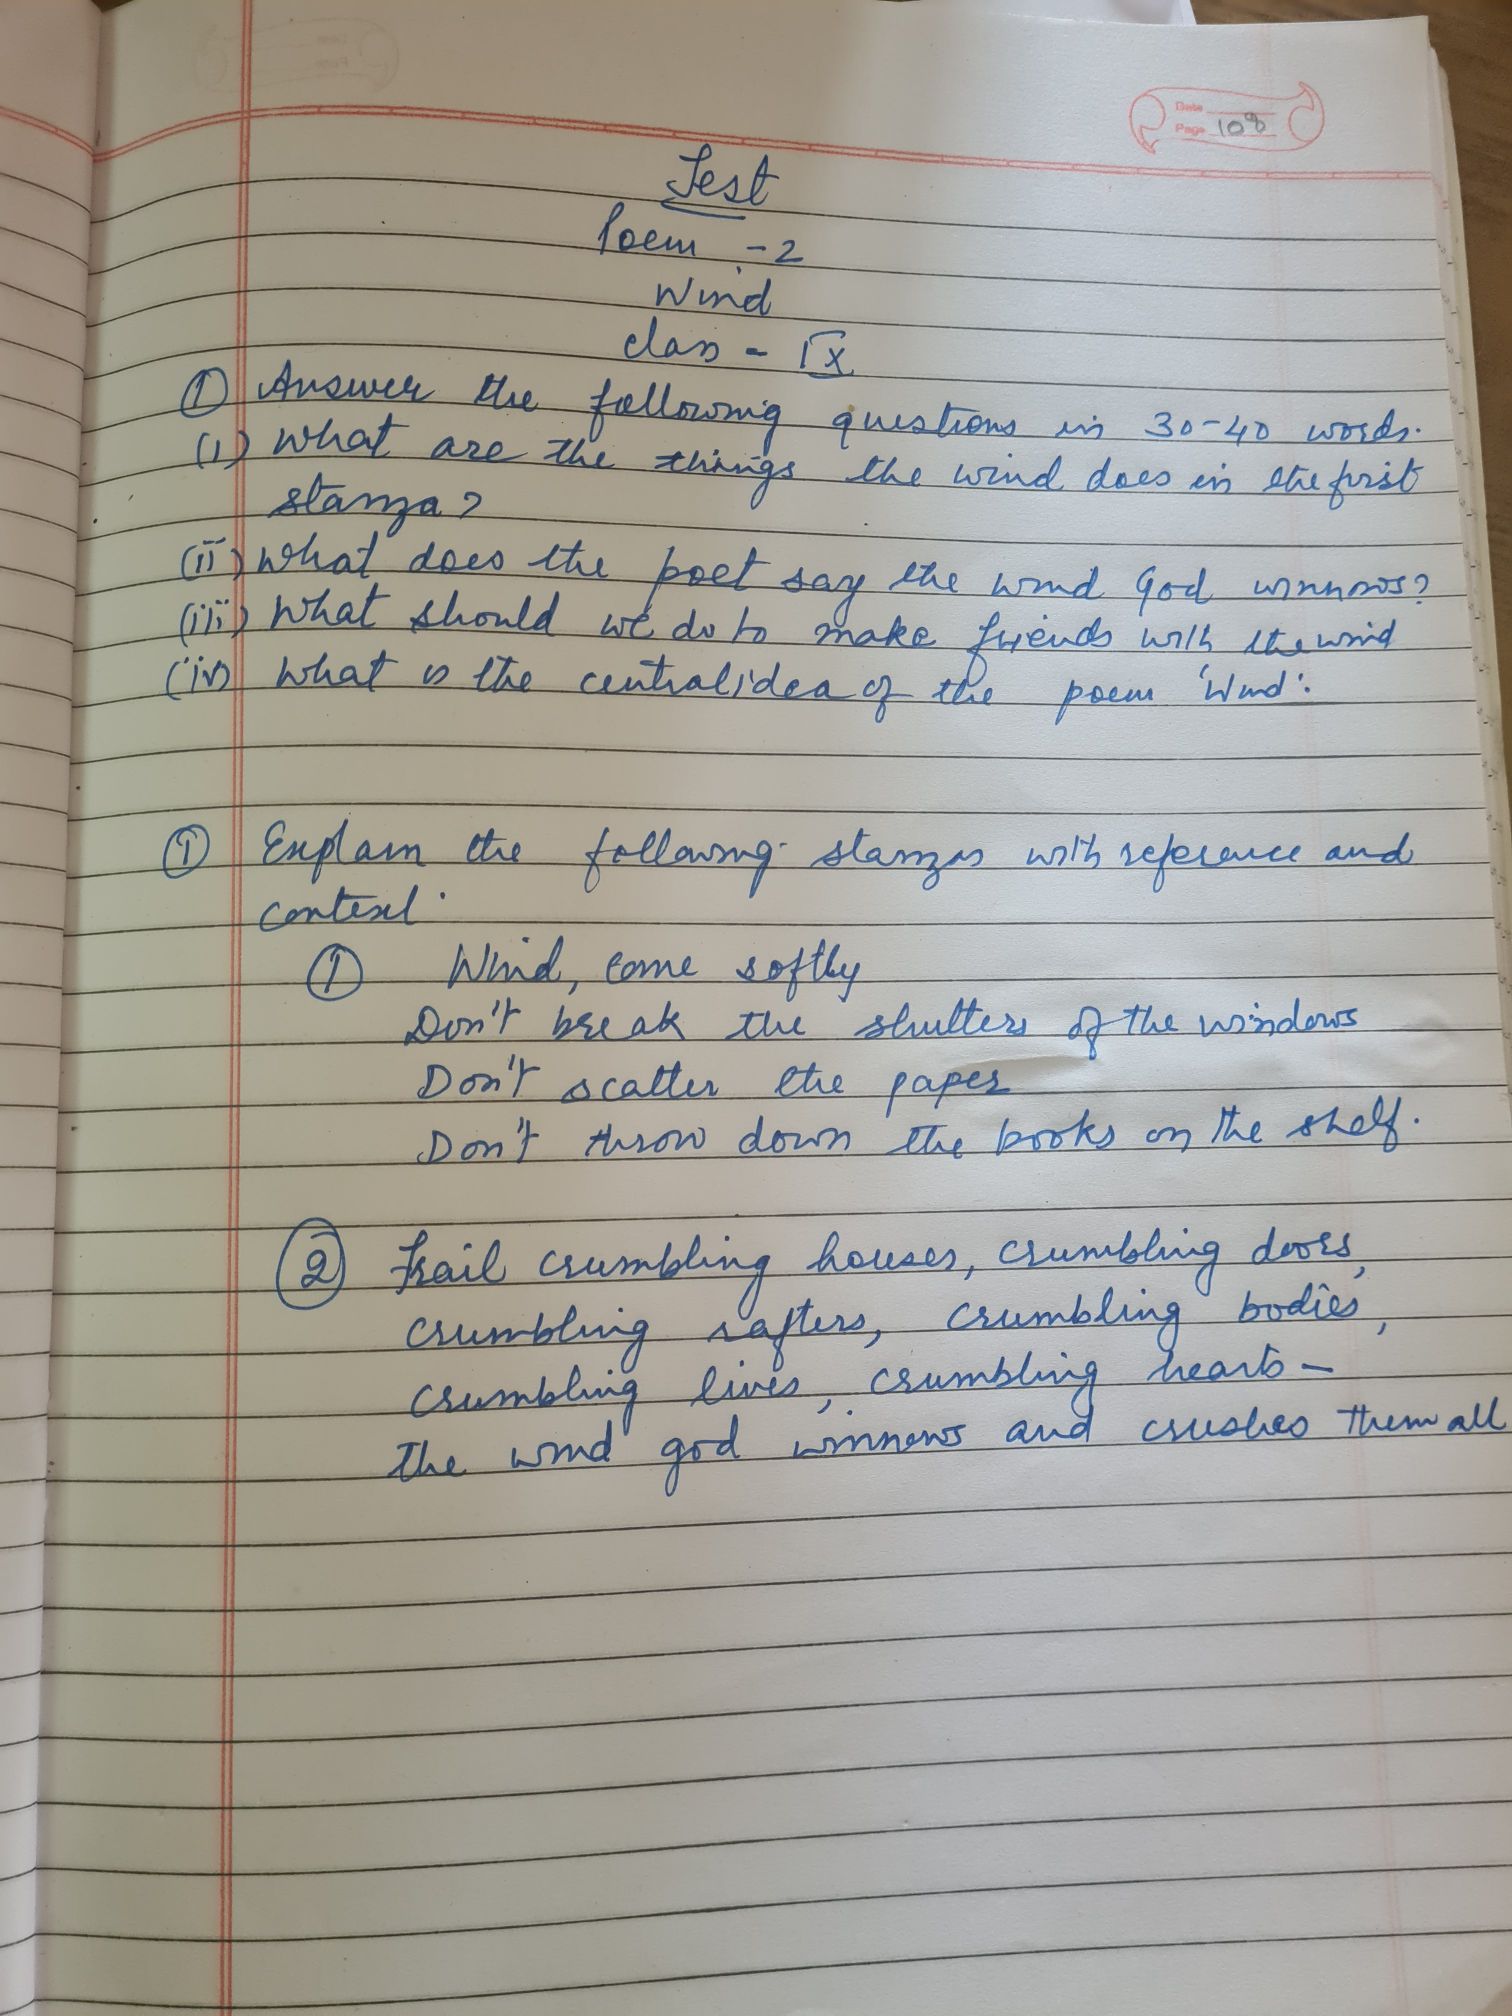 Date
Page 108
Test
Poem - 2
Wind
class - IX
① Answer the following questions in 30-40 words.
(i) What are the things the wind does in the first
stanza?
(ii) What does the poet say the wind God winnows?
(iii) What should we do to make friends with the wind
(iv) What is the central idea of the poem 'Wind'.
① Explain the following stanzas with reference and
context.
① Wind, come softly
Don't break the shutters of the windows
Don't scatter the paper
Don't throw down the books on the shelf.
② Frail crumbling houses, crumbling doors,
crumbling rafters, crumbling bodies,
crumbling lives, crumbling hearts -
the wind god winnows and crushes them all